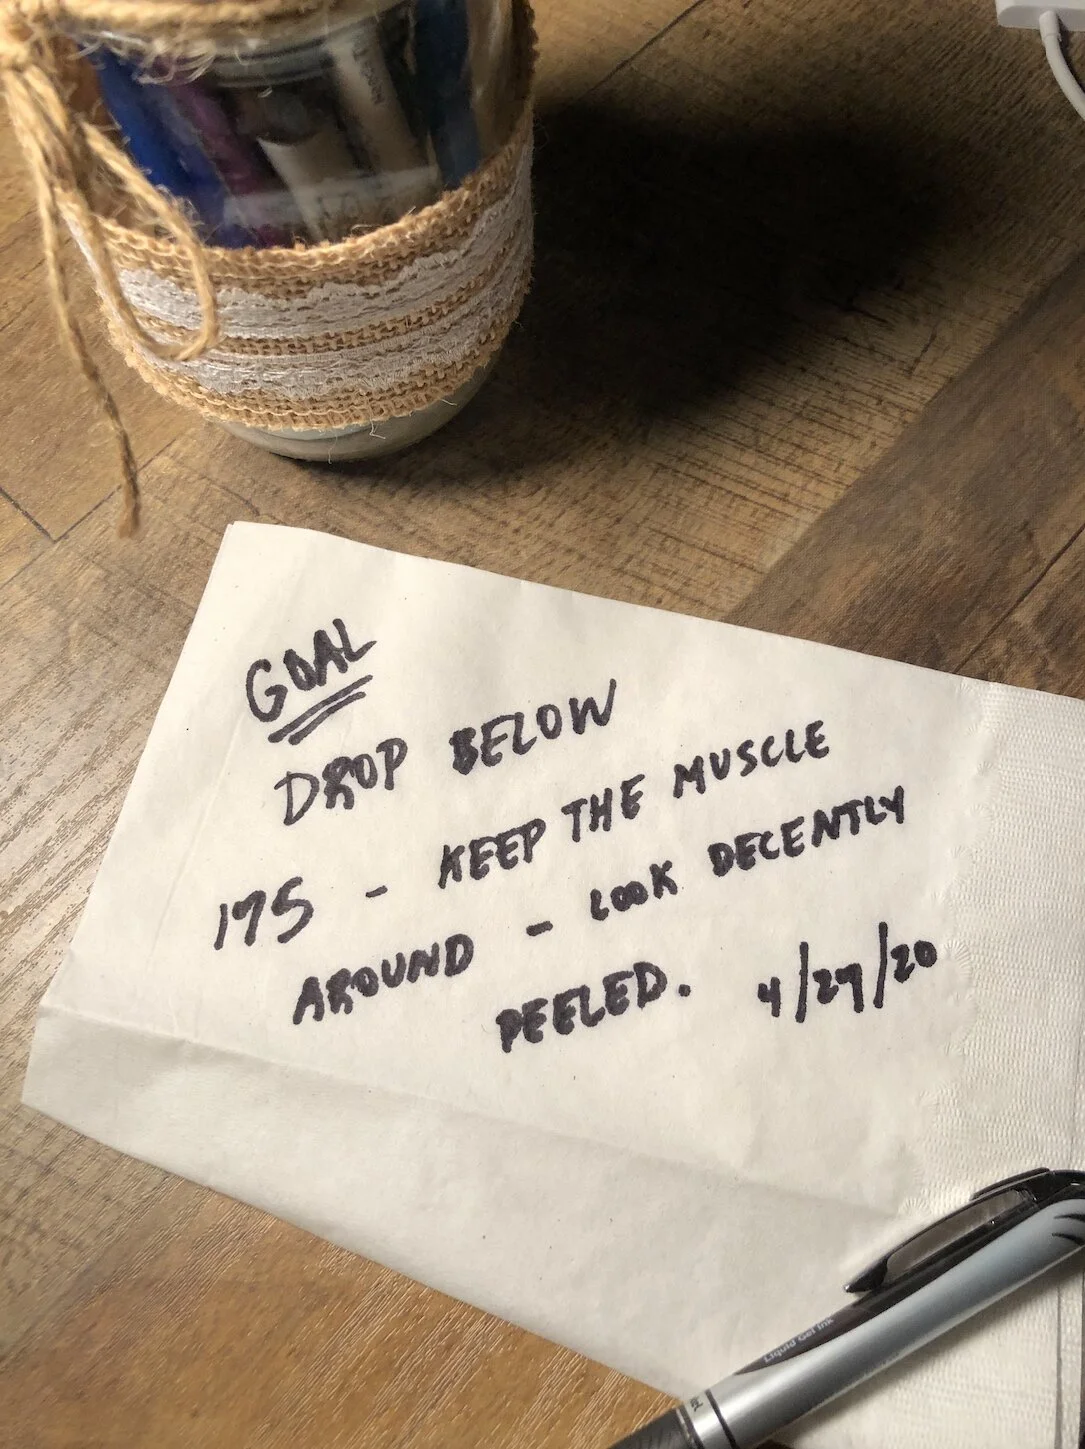 GOAL
DROP BELOW
175 - KEEP THE MUSCLE
AROUND - LOOK DECENTLY
PEELED. 4/27/20
Liquid Gel Ink